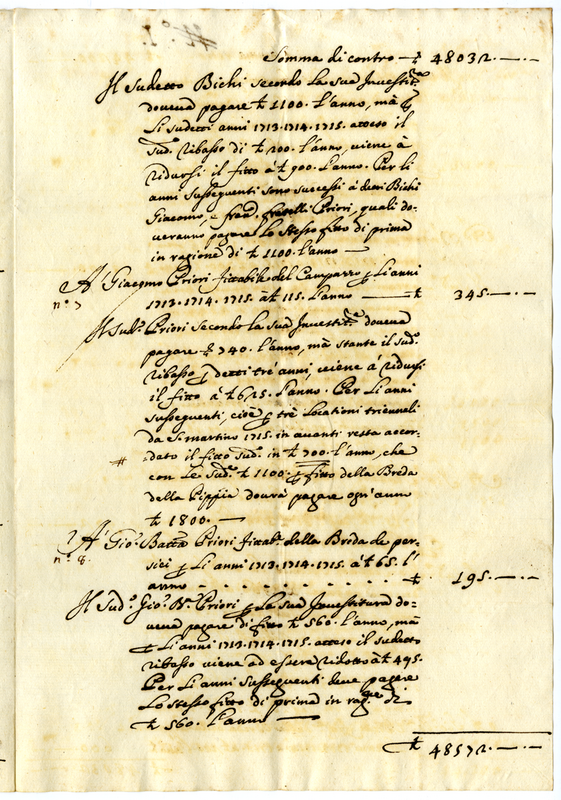 Somma di contro — £ 48032.—.—
Il sudetto Bichi secondo la sua Investit.ra
doueua pagare £ 1100. l'anno, mà p
li sudetti anni 1713. 1714. 1715. atteso il
sud.o ribasso di £ 200. l'anno, uiene à
ridursi il fitto à £ 900. l'anno. Per li
anni susseguenti sono successi à detti Bichi
Giacomo, e fratelli Priori, quali do-
ueranno pagare lo stesso fitto di prima
in ragione di £ 1100. l'anno —
A Giacomo Priori fittabile del Camparro p li anni
n.o 7
1713. 1714. 1715. à £ 115. l'anno — £ 345.—.—
Il sud.o Priori secondo la sua Inuestit.ra doueua
pagare £ 740. l'anno, mà stante il sud.o
ribasso p detti trè anni, uiene à ridursi
il fitto à £ 625. l'anno. Per li anni
susseguenti, cioè p trè locationi triennali
da S. Martino 1715. in auanti resta accor-
dato il fitto sud.o in £ 700. l'anno, che
con le sud.e £ 1100. p fitto della Breda
della Pippia dourà pagare ogn'anno
£ 1800. —
A Gio. Batta Priori fittab.e della Brida de per-
n.o 8.
sici p li anni 1713. 1714. 1715. à £ 65. l'
anno - - - - - - - - £ 195.—.—
Il sud.o Gio. B.a Priori p la sua Inuestitura do-
ueua pagare di fitto £ 560. l'anno, mà
p li anni 1713. 1714. 1715. atteso il sudetto
ribasso uiene ad essere ridotto à £ 495.
Per li anni susseguenti deue pagare
lo stesso fitto di prima in rag.ne di
£ 560. l'anno —
£ 48572.—.—